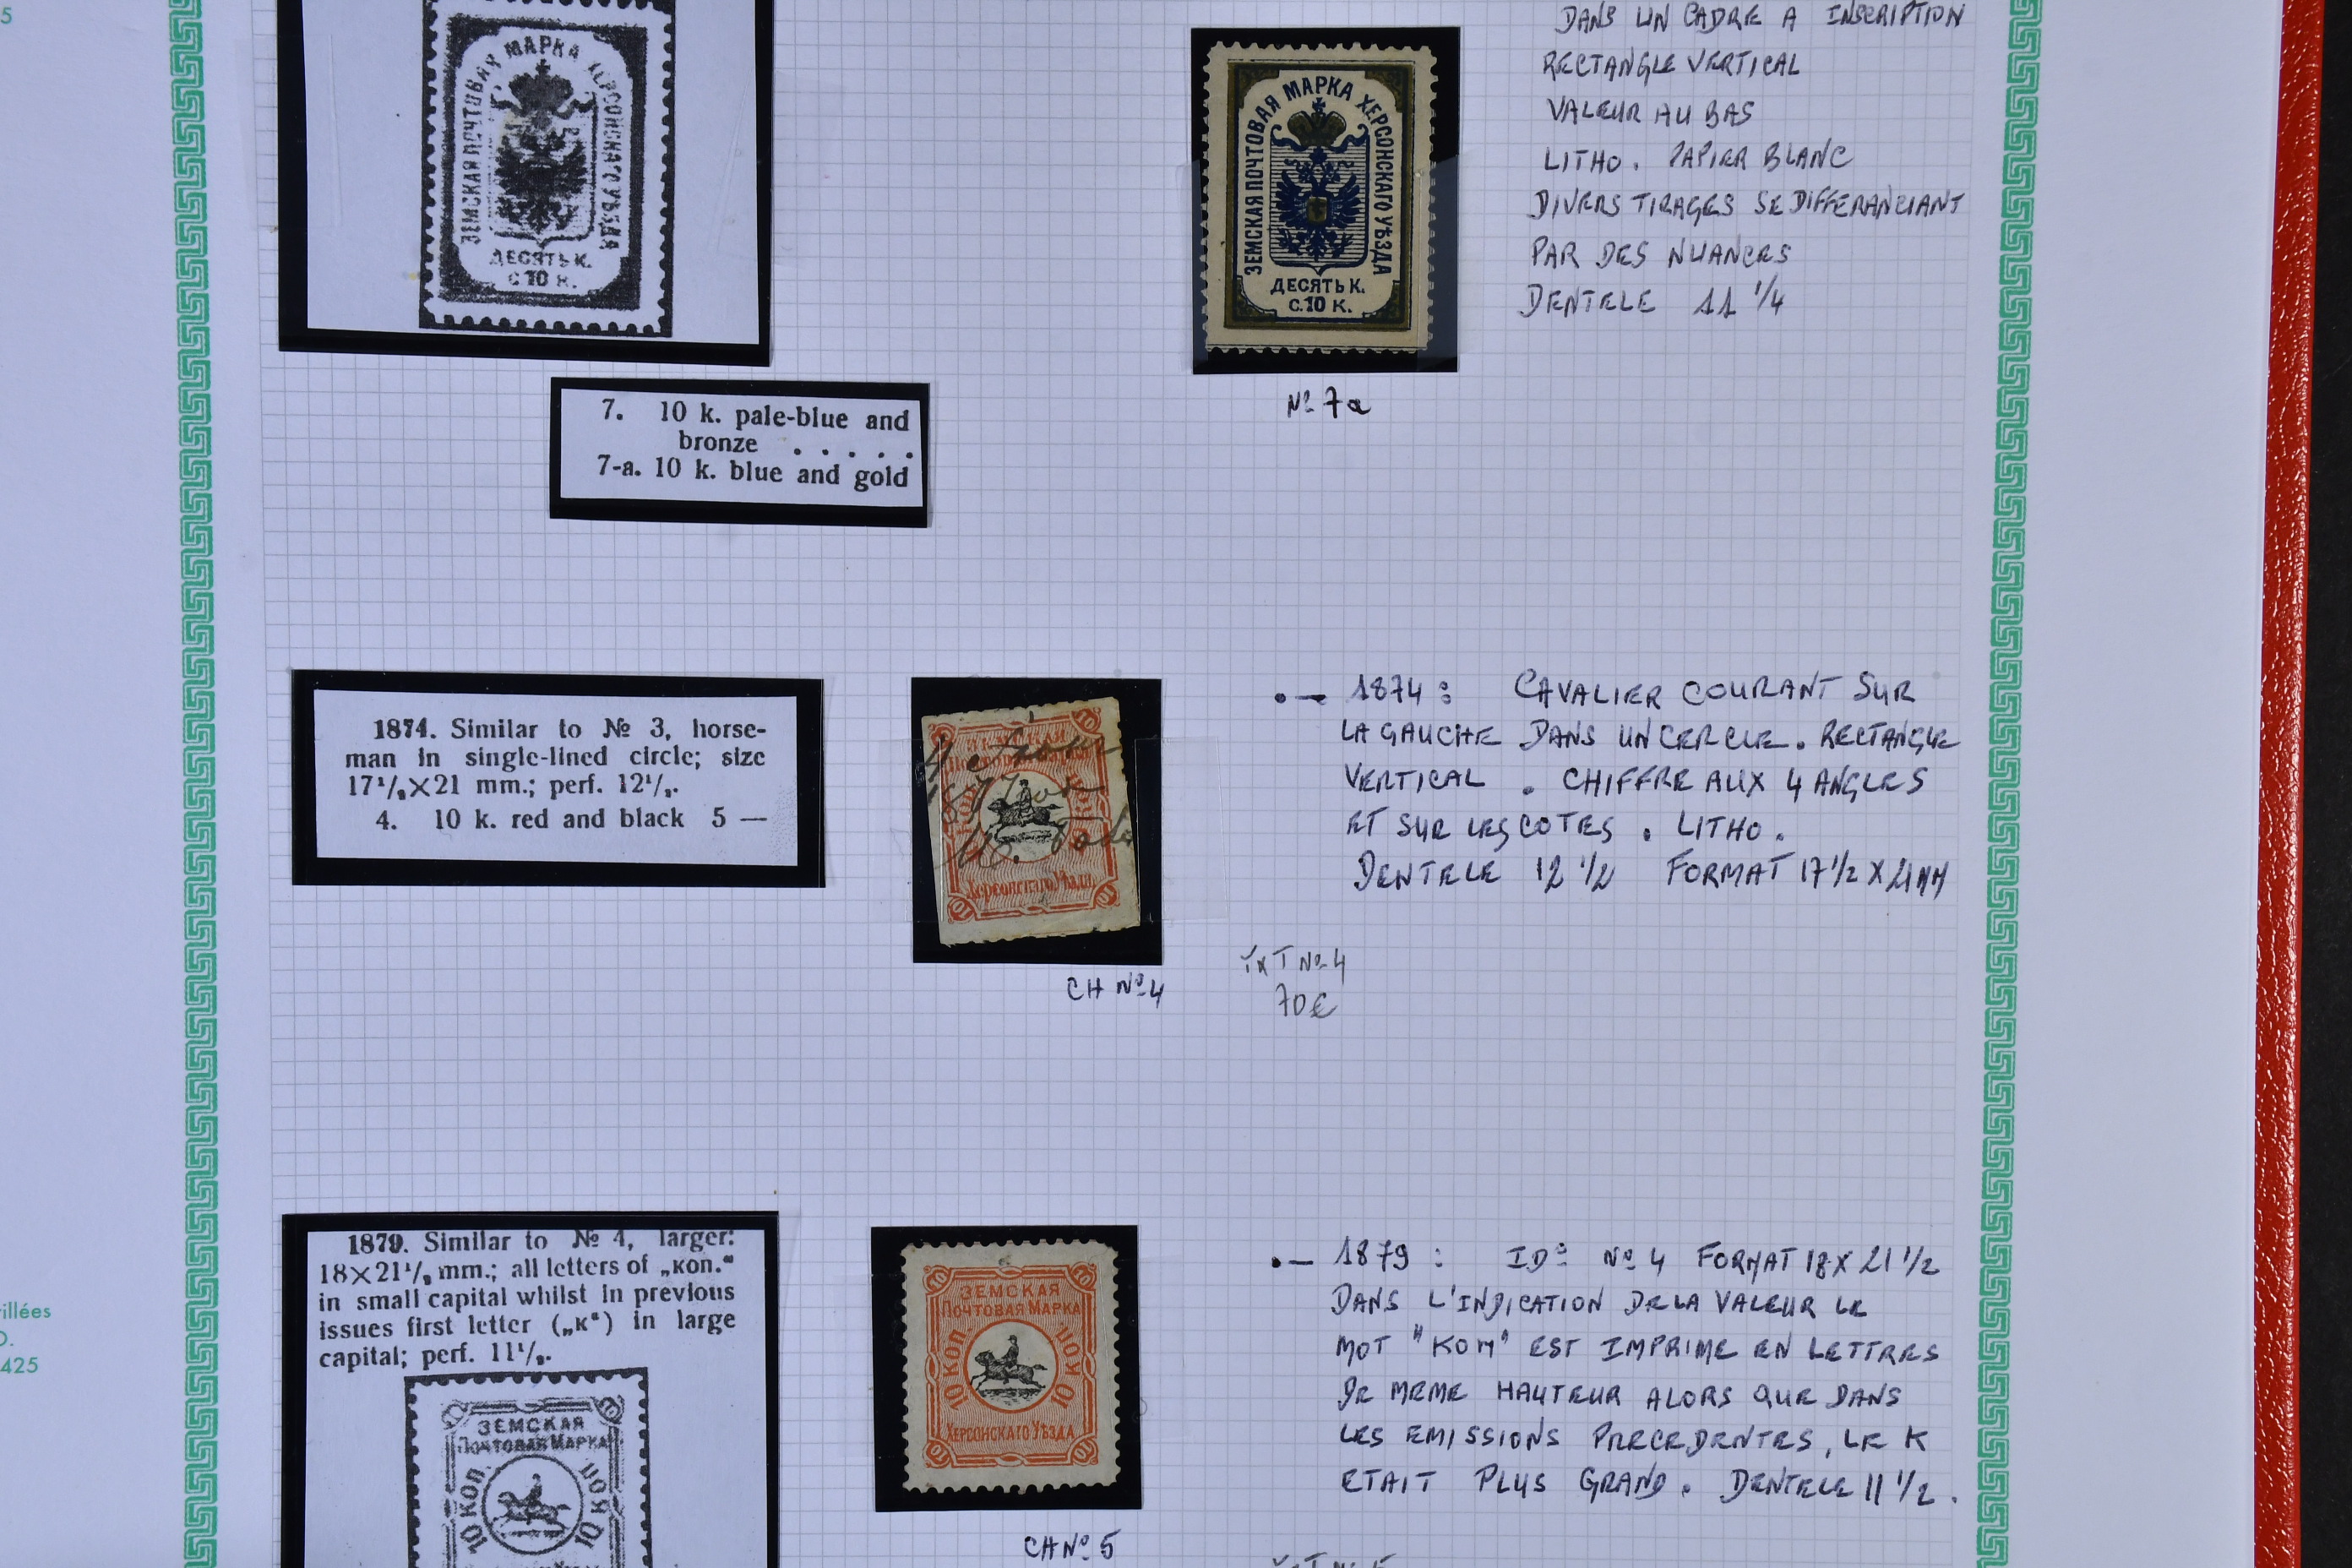 5
МАРКА
ЗЕМСКАЯ ПОЧТОВАЯ МАРКА ХЕРСОНСКАГО УѢЗДА
ДЕСЯТЬ К.
С 10 К.
7. 10 k. pale-blue and
bronze . . . . .
7-a. 10 k. blue and gold
ЗЕМСКАЯ ПОЧТОВАЯ МАРКА ХЕРСОНСКАГО УѢЗДА
ДЕСЯТЬ К.
С.10 К.
Nº 7a
DANS UN CADRE A INSCRIPTION
RECTANGLE VERTICAL
VALEUR AU BAS
LITHO. PAPIER BLANC
DIVERS TIRAGES SE DIFFERANCIANT
PAR DES NUANCES
DENTELE 11 1/4
1874. Similar to № 3, horse-
man in single-lined circle; size
17¹/₂×21 mm.; perf. 12¹/₂.
4. 10 k. red and black 5 —
10
10
ЗЕМСКАЯ
Херсонскаго Уѣзда
10
10
CH Nº 4
•— 1874 : CAVALIER COURANT SUR
LA GAUCHE DANS UN CERCLE. RECTANGLE
VERTICAL . CHIFFRE AUX 4 ANGLES
ET SUR LES COTES . LITHO.
DENTELE 12 1/2 FORMAT 17 1/2 X 21 MM
Nº 4
70€
1879. Similar to № 4, larger:
18×21¹/₂ mm.; all letters of „коп.“
in small capital whilst in previous
issues first letter („к“) in large
capital; perf. 11¹/₂.
ЗЕМСКАЯ
ПОЧТОВАЯ МАРКА
10 КОП
10 КОП
10
10
ЗЕМСКАЯ
ПОЧТОВАЯ МАРКА
10 КОП
10 КОП
ХЕРСОНСКАГО УѢЗДА
10
10
CH Nº 5
•— 1879 : ID: Nº 4 FORMAT 18 X 21 1/2
DANS L'INDICATION DE LA VALEUR LE
MOT "KOM" EST IMPRIME EN LETTRES
DE MEME HAUTEUR ALORS QUE DANS
LES EMISSIONS PRECEDENTES, LE K
ETAIT PLUS GRAND. DENTELE 11 1/2.
illées
O.
425